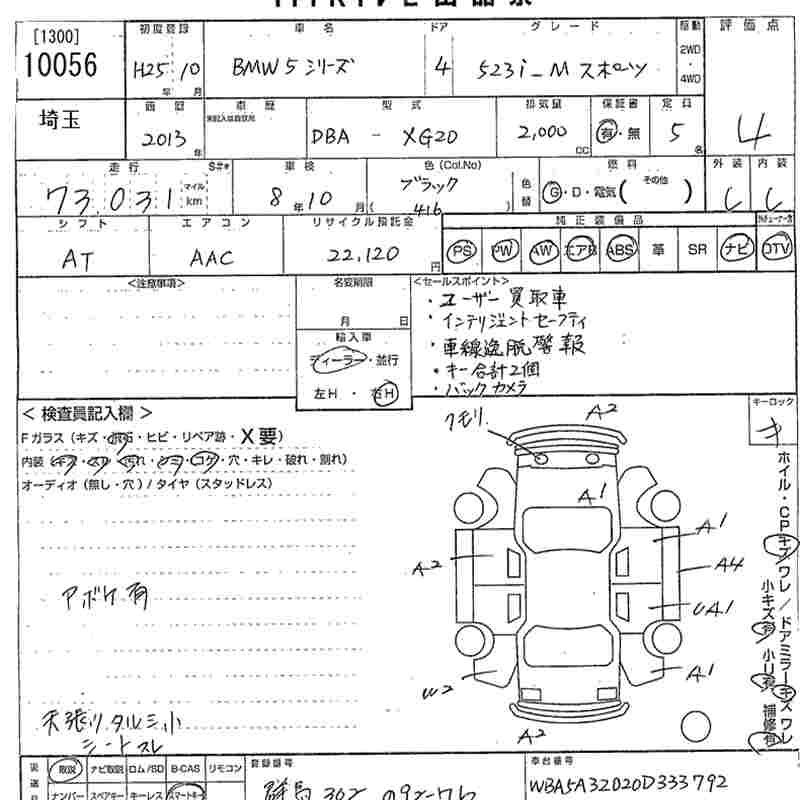 [1300]
10056
初度登録
H25年10月
車名
BMW 5 シリーズ
ドア
4
グレード
523i_M スポーツ
駆動
2WD
・
4WD
評価点
4
埼玉
西暦
2013年
車歴
未記入は自家用
型式
DBA - XG20
排気量
2,000 CC
保証書
有・無
定員
5名
走行
S##
73,031
マイル
km
車検
8年10月
色(Col.No)
ブラック
416
色替
燃料
G・D・電気( その他 )
外装
C
内装
C
シフト
AT
エアコン
AAC
リサイクル預託金
22,120円
純正装備品
PS PW AW エアB ABS 革 SR ナビ DTV
<注意事項>
名変期限
月 日
輸入車
ディーラー・並行
左H・右H
<セールスポイント>
・ユーザー買取車
・インテリジェントセーフティ
・車線逸脱警報
・キー合計2個
・バックカメラ
<検査員記入欄>
Fガラス(キズ・飛石・ヒビ・リペア跡・X要)
内装(キズ・スリ・汚れ・シミ・コゲ・穴・キレ・破れ・割れ)
オーディオ(無し・穴)/タイヤ(スタッドレス)
アボケ有
天張りタルミ小
シートスレ
クモリ
A2
A1
A1
A2
A4
UA1
A1
U2
A2
キーロック
キ
ホイル・CPキズワレ/ドアミラーキズワレ
小キズ有 小U有 補修有
取説 ナビ取説 ロム/SD B-CAS リモコン
ナンバー スペアキー キーレス スマートキー
登録番号
群馬 302
車台番号
WBA5A32020D333792